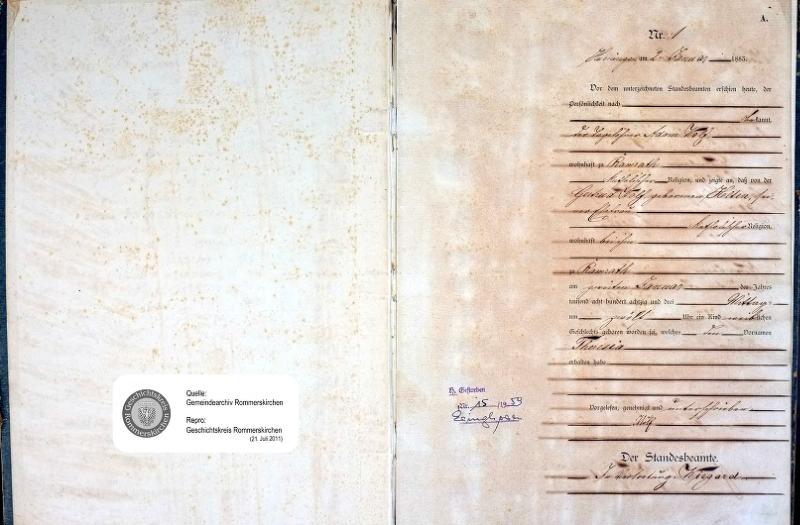 Geschichtskreis Rommerskirchen
Quelle:
Gemeindearchiv Rommerskirchen
Repro:
Geschichtskreis Rommerskirchen
(21. Juli 2011)
A.
Nr. 1
am 2. Januar 1883.
Vor dem unterzeichneten Standesbeamten erschien heute, der
Persönlichkeit nach
bekannt,
der Tagelöhner Adam
wohnhaft zu Ramrath
katholischer Religion, und zeigte an, daß von der
geborenen
katholischer Religion,
wohnhaft bei ihm
zu Ramrath
am zweiten Januar des Jahres
tausend acht hundert achtzig und drei Mittags
um zwölf Uhr ein Kind weiblichen
Geschlechts geboren worden sei, welches den Vornamen
Theresia
erhalten habe
H. Gestorben
15
Vorgelesen, genehmigt und unterschrieben
Der Standesbeamte.
In Vertretung: Wiegard